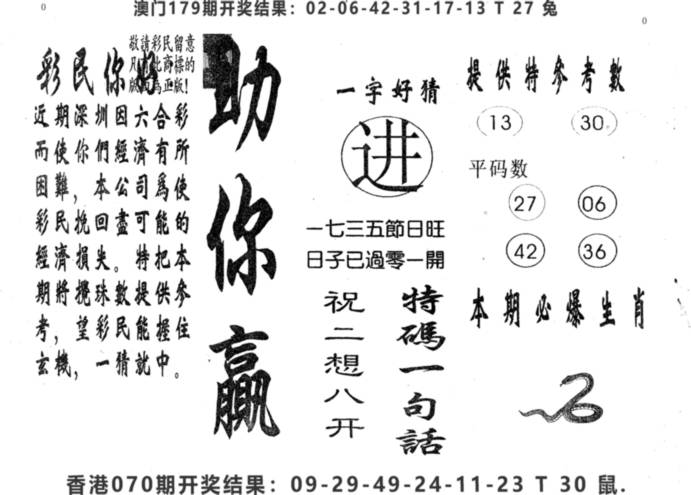 澳门179期开奖结果：02-06-42-31-17-13 T 27 兔
敬請彩民留意
彩民你好
近期深圳因六合彩
而使你們經濟有所
困難，本公司為使
彩民挽回盡可能的
經濟損失。特把本
期將攪珠數提供參
考，望彩民能握住
玄機，一猜就中。
助你贏
一字好猜
进
一七三五節日旺
日子已過零一開
特碼一句話
祝二想八开
提供特參考數
13 30
平码数
27 06
42 36
本期必爆生肖
香港070期开奖结果：09-29-49-24-11-23 T 30 鼠.